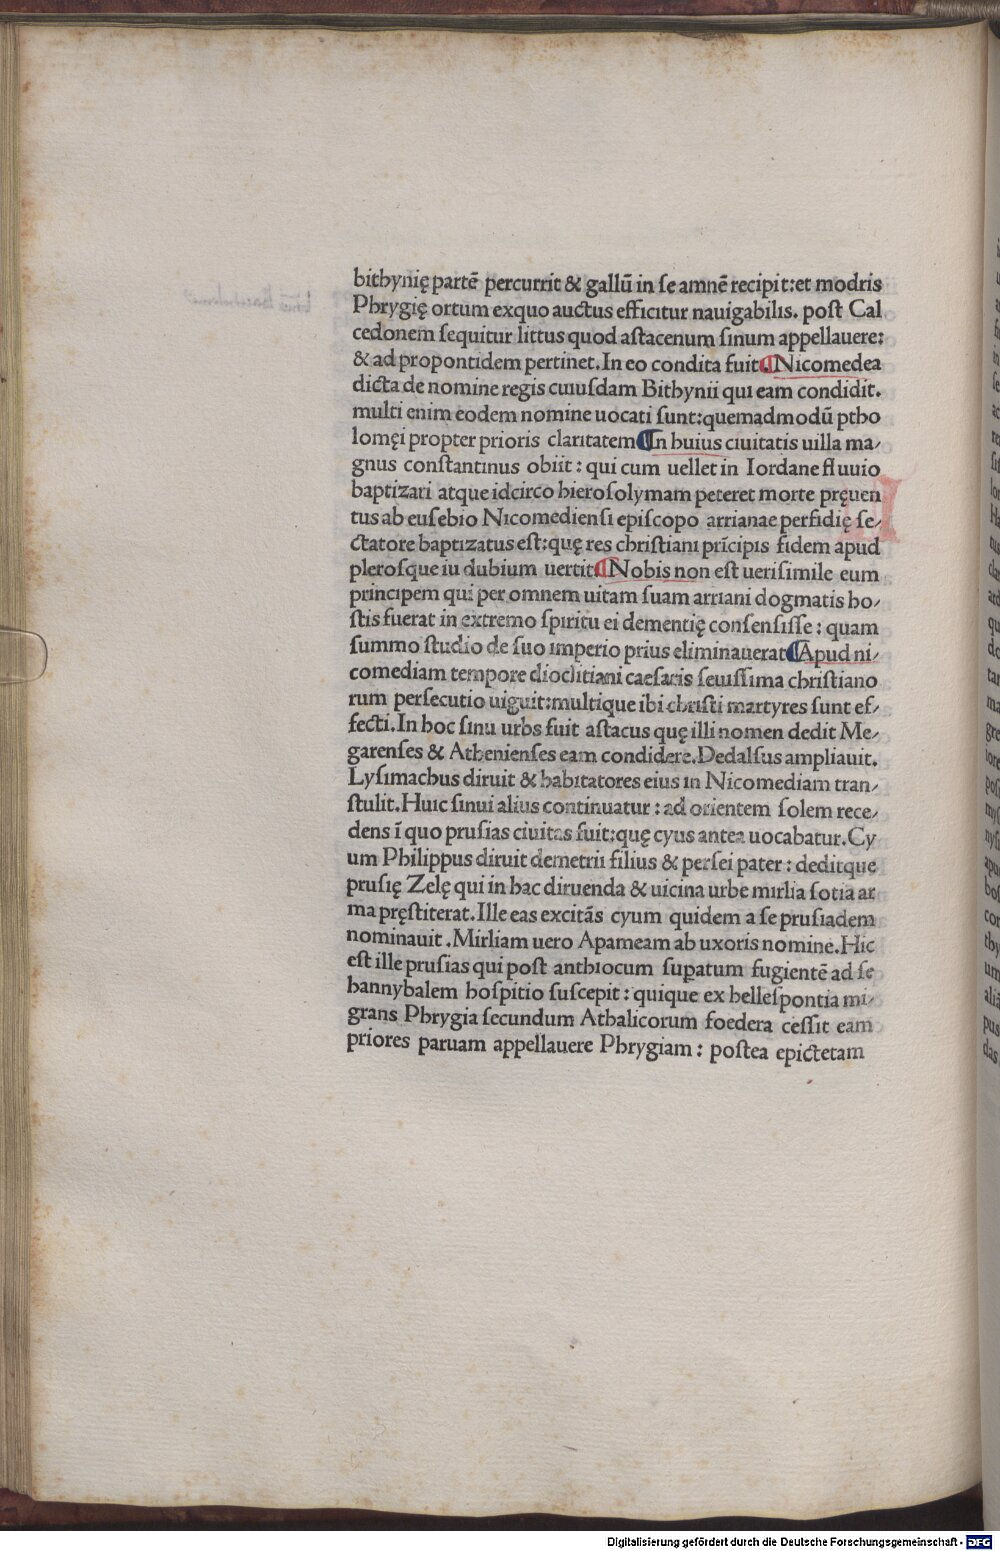 bithynię partē percurrit & gallū in se amnē recipit:et modris
Phrygię ortum exquo auctus efficitur nauigabilis. post Cal
cedonem sequitur littus quod astacenum sinum appellauere:
& ad propontidem pertinet.In eo condita fuit¶Nicomedea
dicta de nomine regis cuiusdam Bithynii qui eam condidit.
multi enim eodem nomine uocati sunt:quemadmodū ptho
lomęi propter prioris claritatem¶In huius ciuitatis uilla ma/
gnus constantinus obiit : qui cum uellet in Iordane fluuio
baptizari atque idcirco hierosolymam peteret morte pręuen
tus ab eusebio Nicomediensi episcopo arrianae perfidię se/
ctatore baptizatus est:quę res christiani prīcipis fidem apud
plerosque iu dubium uertit¶Nobis non est uerisimile eum
principem qui per omnem uitam suam arriani dogmatis ho/
stis fuerat in extremo spiritu ei dementię consensisse : quam
summo studio de suo imperio prius eliminauerat¶Apud ni/
comediam tempore dioclitiani caesaris seuissima christiano
rum persecutio uiguit:multique ibi christi martyres sunt ef/
fecti.In hoc sinu urbs fuit astacus quę illi nomen dedit Me/
garenses & Athenienses eam condidere.Dedalsus ampliauit.
Lysimachus diruit & habitatores eius in Nicomediam tran/
stulit.Huic sinui alius continuatur : ad orientem solem rece/
dens ī quo prusias ciuitas fuit:quę cyus antea uocabatur.Cy
um Philippus diruit demetrii filius & persei pater : deditque
prusię Zelę qui in hac diruenda & uicina urbe mirlia sotia ar
ma pręstiterat.Ille eas excitās cyum quidem a se prusiadem
nominauit .Mirliam uero Apameam ab uxoris nomine.Hic
est ille prusias qui post anthiocum supatum fugientē ad se
hannybalem hospitio suscepit : quique ex hellespontia mi/
grans Phrygia secundum Athalicorum foedera cessit eam
priores paruam appellauere Phrygiam : postea epictetam
Digitalisierung gefördert durch die Deutsche Forschungsgemeinschaft - DFG